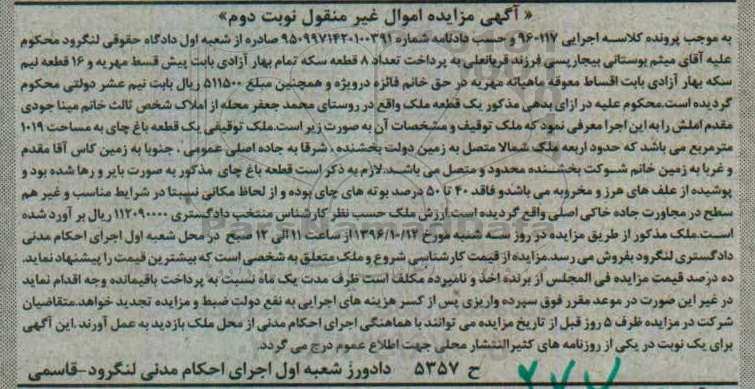 « آگهی مزایده اموال غیر منقول نوبت دوم»
به موجب پرونده کلاسه اجرایی ۹۶۰۱۱۷ و حسب دادنامه شماره ۹۵۰۹۹۷۱۴۲۰۱۰۰۳۹۱ صادره از شعبه اول دادگاه حقوقی لنگرود محکوم
علیه آقای میثم بوستانی بیجارپسی فرزند قربانعلی به پرداخت تعداد ۸ قطعه سکه تمام بهار آزادی بابت پیش قسط مهریه و ۱۶ قطعه نیم
سکه بهار آزادی بابت اقساط معوقه ماهیانه مهریه در حق خانم فائزه درویژه و همچنین مبلغ ۵۱۱۵۰۰ ریال بابت نیم عشر دولتی محکوم
گردیده است.محکوم علیه در ازای بدهی مذکور یک قطعه ملک واقع در روستای محمد جعفر محله از املاک شخص ثالث خانم مینا جودی
مقدم املش را به این اجرا معرفی نمود که ملک توقیف و مشخصات آن به صورت زیر است.ملک توقیفی یک قطعه باغ چای به مساحت ۱۰۱۹
مترمربع می باشد که حدود اربعه ملک شمالا متصل به زمین دولت بخشنده ، شرقا به جاده اصلی عمومی ، جنوبا به زمین کاس آقا مقدم
و غربا به زمین خانم شوکت بخشنده محدود و متصل می باشد.لازم به ذکر است قطعه باغ چای مذکور به صورت بایر و رها شده بود و
پوشیده از علف های هرز و مخروبه می باشدو فاقد ۴۰ تا ۵۰ درصد بوته های چای بوده و از لحاظ مکانی نسبتا در شرایط مناسب و غیر هم
سطح در مجاورت جاده خاکی اصلی واقع گردیده است.ارزش ملک حسب نظر کارشناس منتخب دادگستری ۱۱۲۰۹۰۰۰۰ ریال بر آورد شده
است.ملک مذکور از طریق مزایده در روز سه شنبه مورخ ۱۳۹۶/۱۰/۱۲ از ساعت ۱۱ الی ۱۲ صبح در محل شعبه اول اجرای احکام مدنی
دادگستری لنگرود بفروش می رسد.مزایده از قیمت کارشناسی شروع و ملک متعلق به شخصی است که بیشترین قیمت را پیشنهاد نماید.
ده درصد قیمت مزایده فی المجلس از برنده اخذ و نامبرده مکلف است ظرف مدت یک ماه نسبت به پرداخت باقیمانده وجه اقدام نماید
در غیر این صورت در موعد مقرر فوق سپرده واریزی پس از کسر هزینه های اجرایی به نفع دولت ضبط و مزایده تجدید خواهد.متقاضیان
شرکت در مزایده ظرف ۵ روز قبل از تاریخ مزایده می توانند با هماهنگی اجرای احکام مدنی از محل ملک بازدید به عمل آورند .این آگهی
برای یک نوبت در یکی از روزنامه های کثیرالانتشار محلی جهت اطلاع عموم درج می گردد.
ح ۵۳۵۷ دادورز شعبه اول اجرای احکام مدنی لنگرود-قاسمی